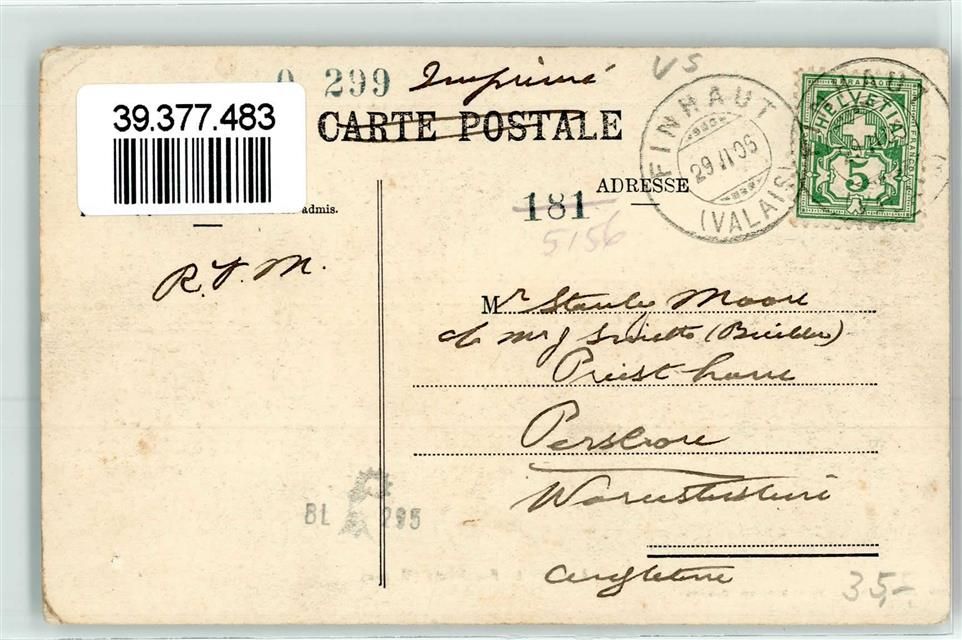 0 299 Imprimé
VS
39.377.483
CARTE POSTALE
FINHAUT
29 II 06
(VALAIS)
FINHAUT
HELVETIA
FRANCO
5
ADRESSE
admis.
181
5156
R. T. M.
Mr Stanley Moore
c/o Mr J (Builder)
Priest Lane
Pershore
Worcestershire
Angleterre
BL 295
35,-